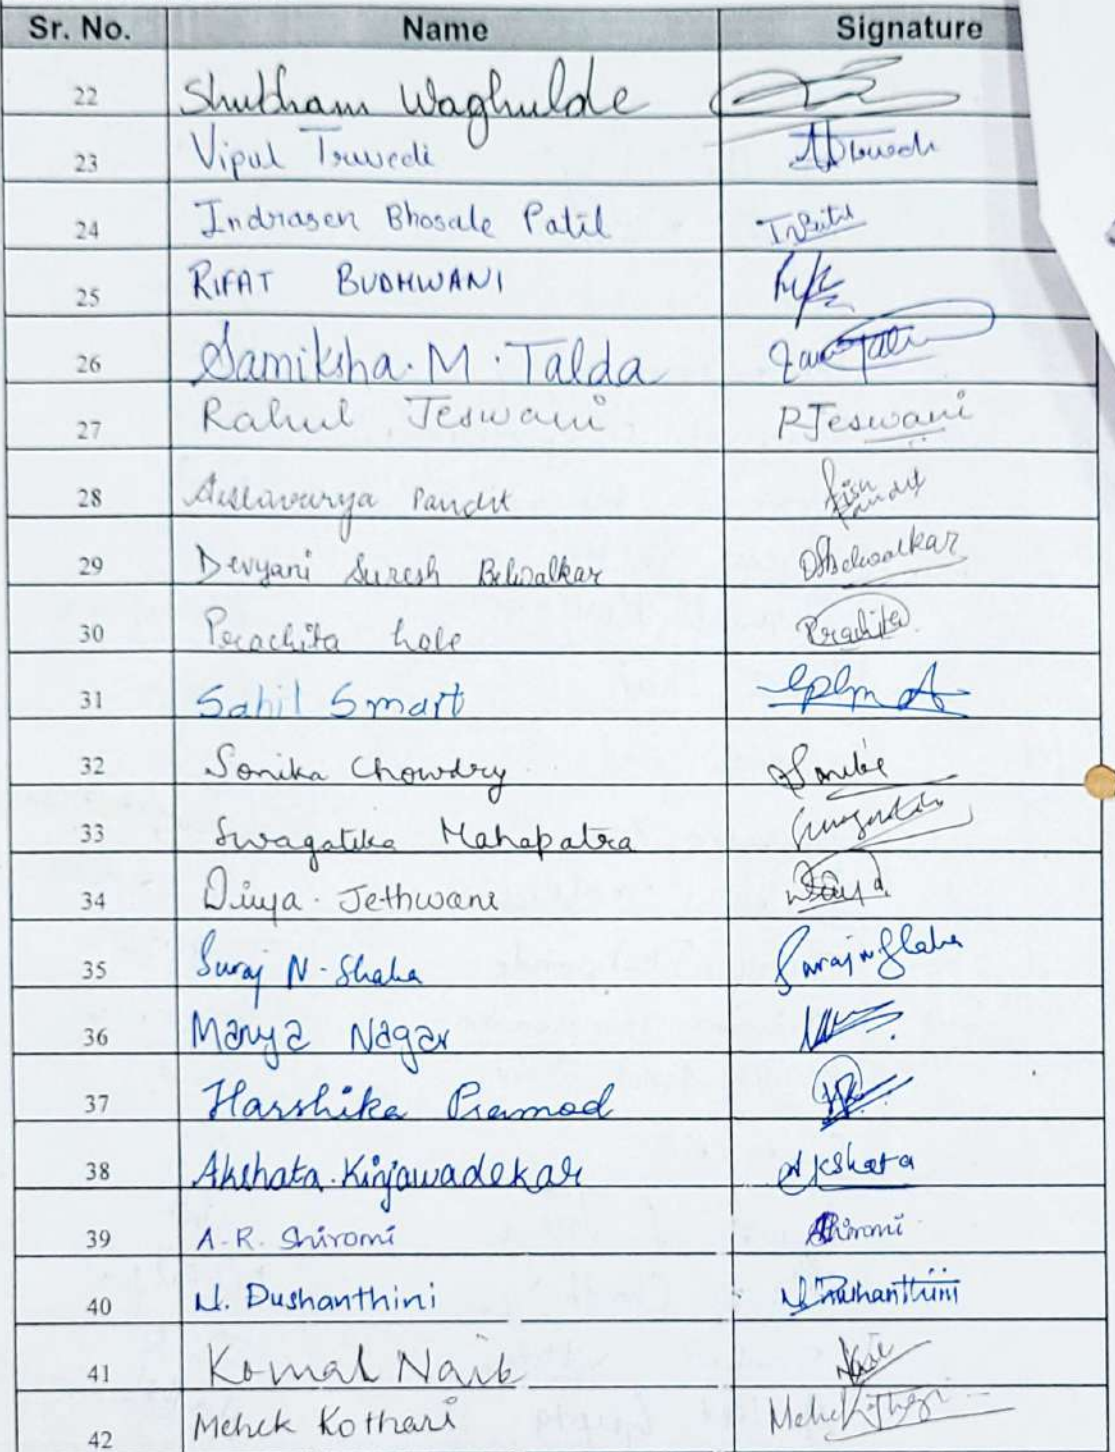 Sr. No. Name Signature
22 Shubham Waghulde
23 Vipul Truvedi
24 Indrasen Bhosale Patil
25 RIFAT BUDHWANI
26 Samiksha. M. Talda
27 Rahul Jeswani RJeswani
28 Aishwarya Pandit
29 Devyani Suresh Belwalkar DSBelwalkar
30 Prachita hole Prachita
31 Sahil Smart
32 Sonika Chowdry
33 Swagatika Mahapatra
34 Divya. Jethwani Divya
35 Suraj N. Shaha Suraj N Shaha
36 Manya Nagar
37 Harshika Pramod
38 Akshata. Kinjawadekar Akshata
39 A.R. Shiromi Shiromi
40 N. Dushanthini N Dushanthini
41 Komal Naik Naik
42 Mehek Kothari Mehek Kothari